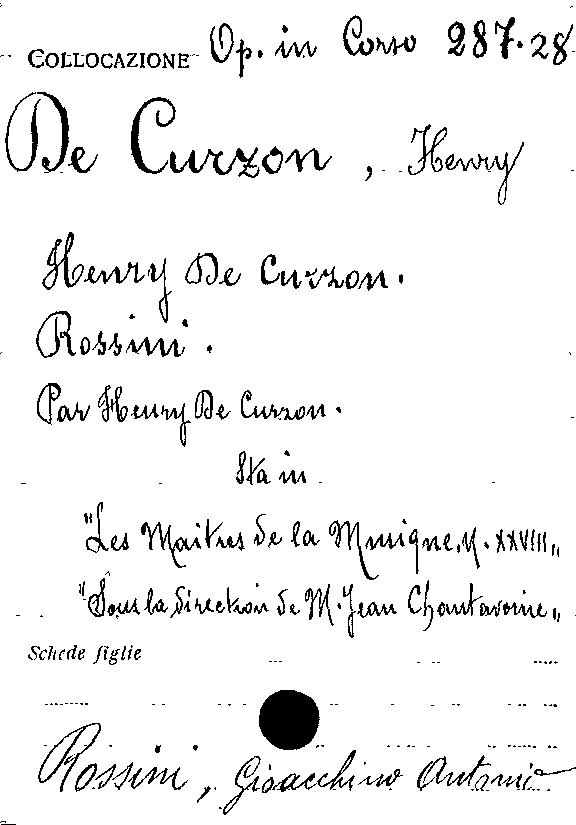 COLLOCAZIONE Op. in Corso 287.28
De Curzon, Henry
Henry De Curzon.
Rossini.
Par Henry De Curzon.
Sta in
"Les Maitres de la Musique, N. XXVIII„
"Sous la direction de M. Jean Chantavoine„
Schede figlie
Rossini, Gioacchino Antonio